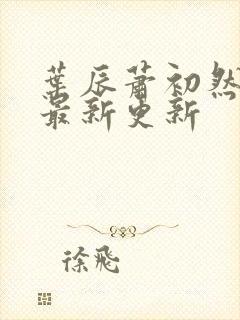 葉辰蕭初然
最新更新
徐飛